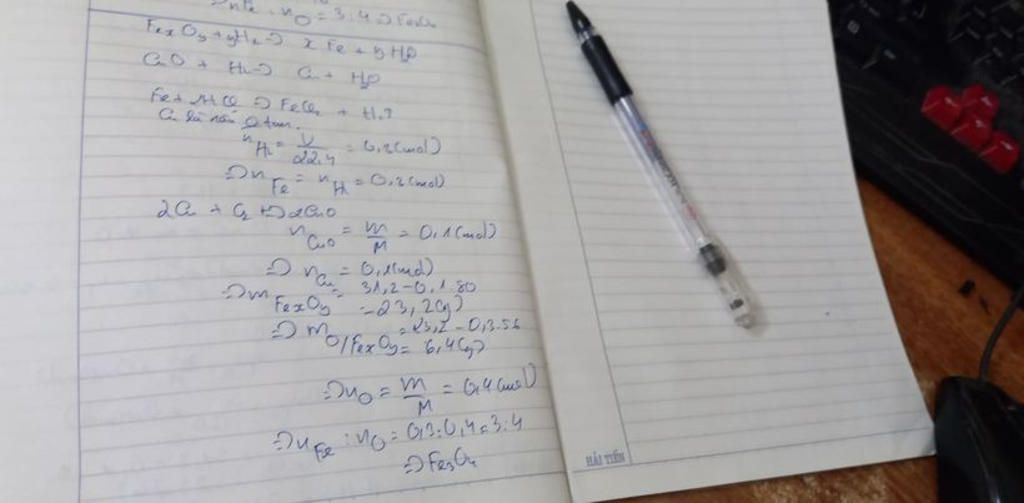 => nFe : nO = 3:4 => Fe3O4
FexOy + yH2 => x Fe + y H2O
CuO + H2 => Cu + H2O
Fe + HCl => FeCl2 + H2↑
Cu là rắn Q tan.
nH2 = V/22,4 = 0,3(mol)
=> nFe = nH2 = 0,3(mol)
2Cu + O2 => 2CuO
nCuO = m/M = 0,1(mol)
=> nCu = 0,1(mol)
=> mFexOy = 31,2 - 0,1.80
= 23,2(g)
=> mO/FexOy = 23,2 - 0,3.56
= 6,4(g)
=> nO = m/M = 0,4(mol)
=> nFe : nO = 0,3:0,4=3:4
=> Fe3O4
HẢI TIẾN